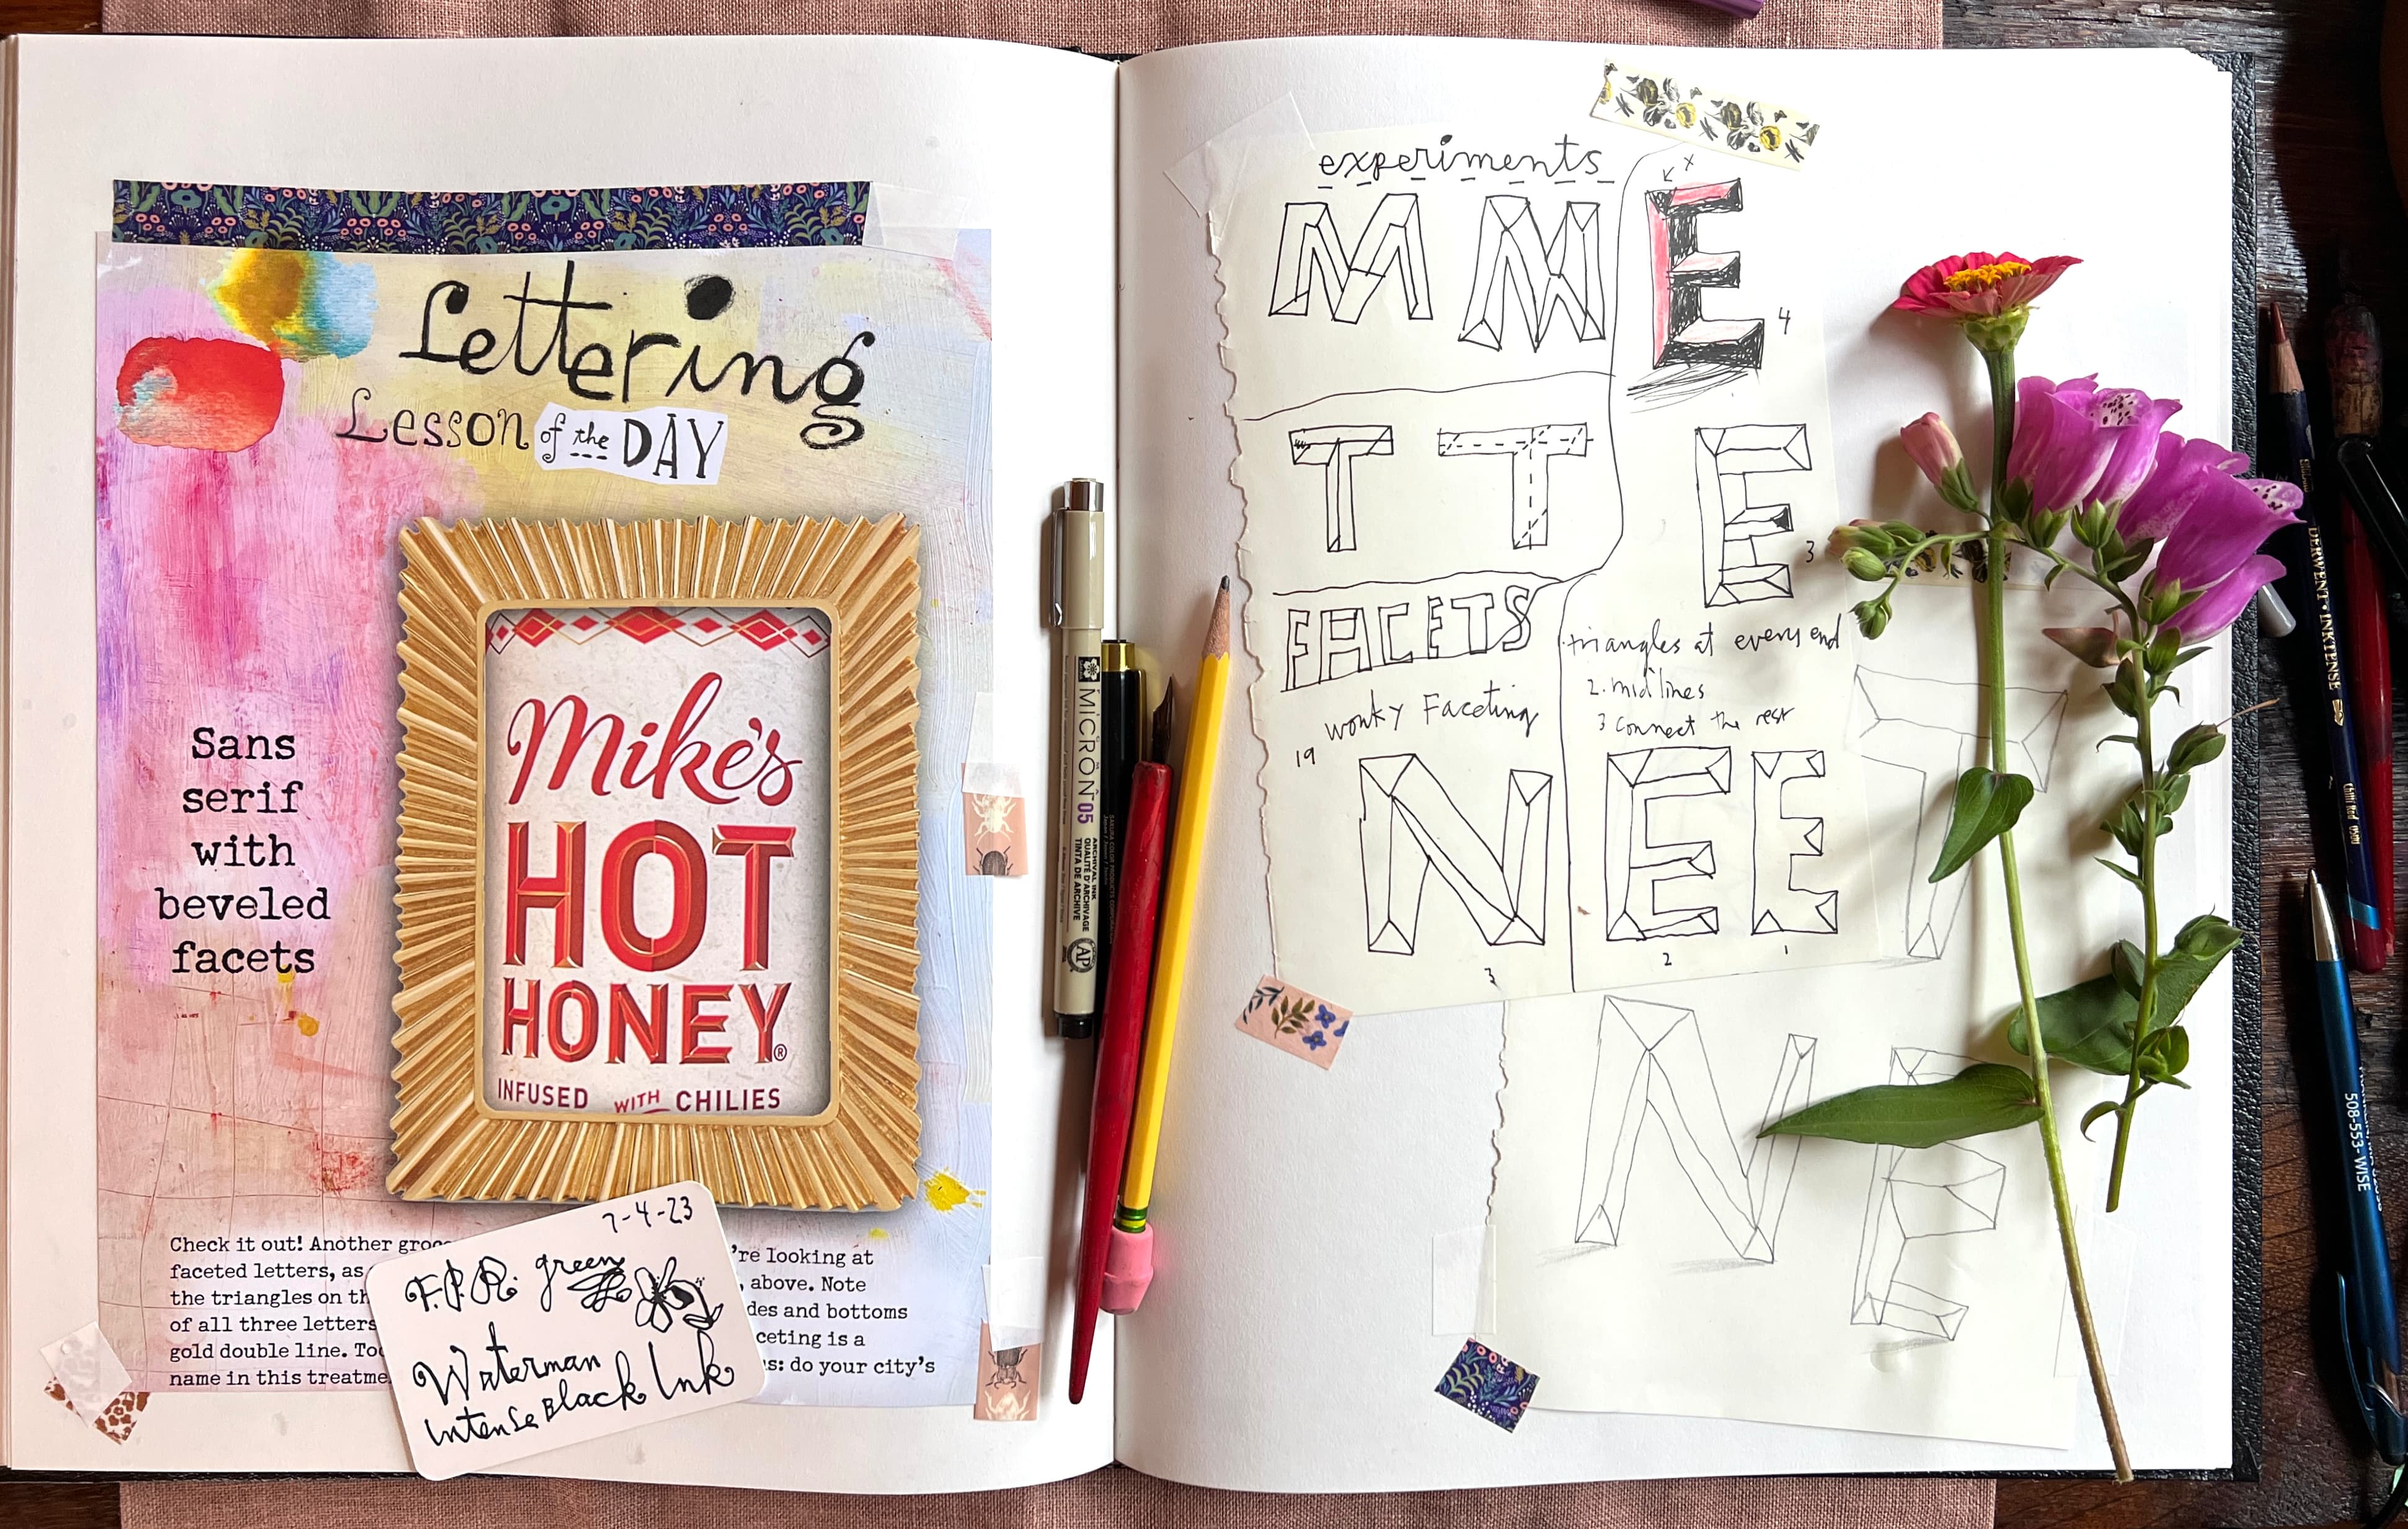 Lettering
Lesson of the DAY
Sans
serif
with
beveled
facets
Mike's
HOT
HONEY®
INFUSED WITH CHILIES
Check it out! Another
faceted letters, as
the triangles on
of all three letters
gold double line.
name in this
're looking at
, above. Note
and bottoms
is a
do your city's
7-4-23
F.P.R. green
Waterman
Intense Black Ink
MICRON 05
ARCHIVAL INK
QUALITÉ D'ARCHIVAGE
TINTA DE ARCHIVE
AP
experiments
M M E
x
4
T T E
3
FACETS
triangles at every end
2. midlines
3 connect the rest
wonky Faceting
19
N E E
3 2 1
T
N E
DERWENT · INKTENSE
508-553-WISE